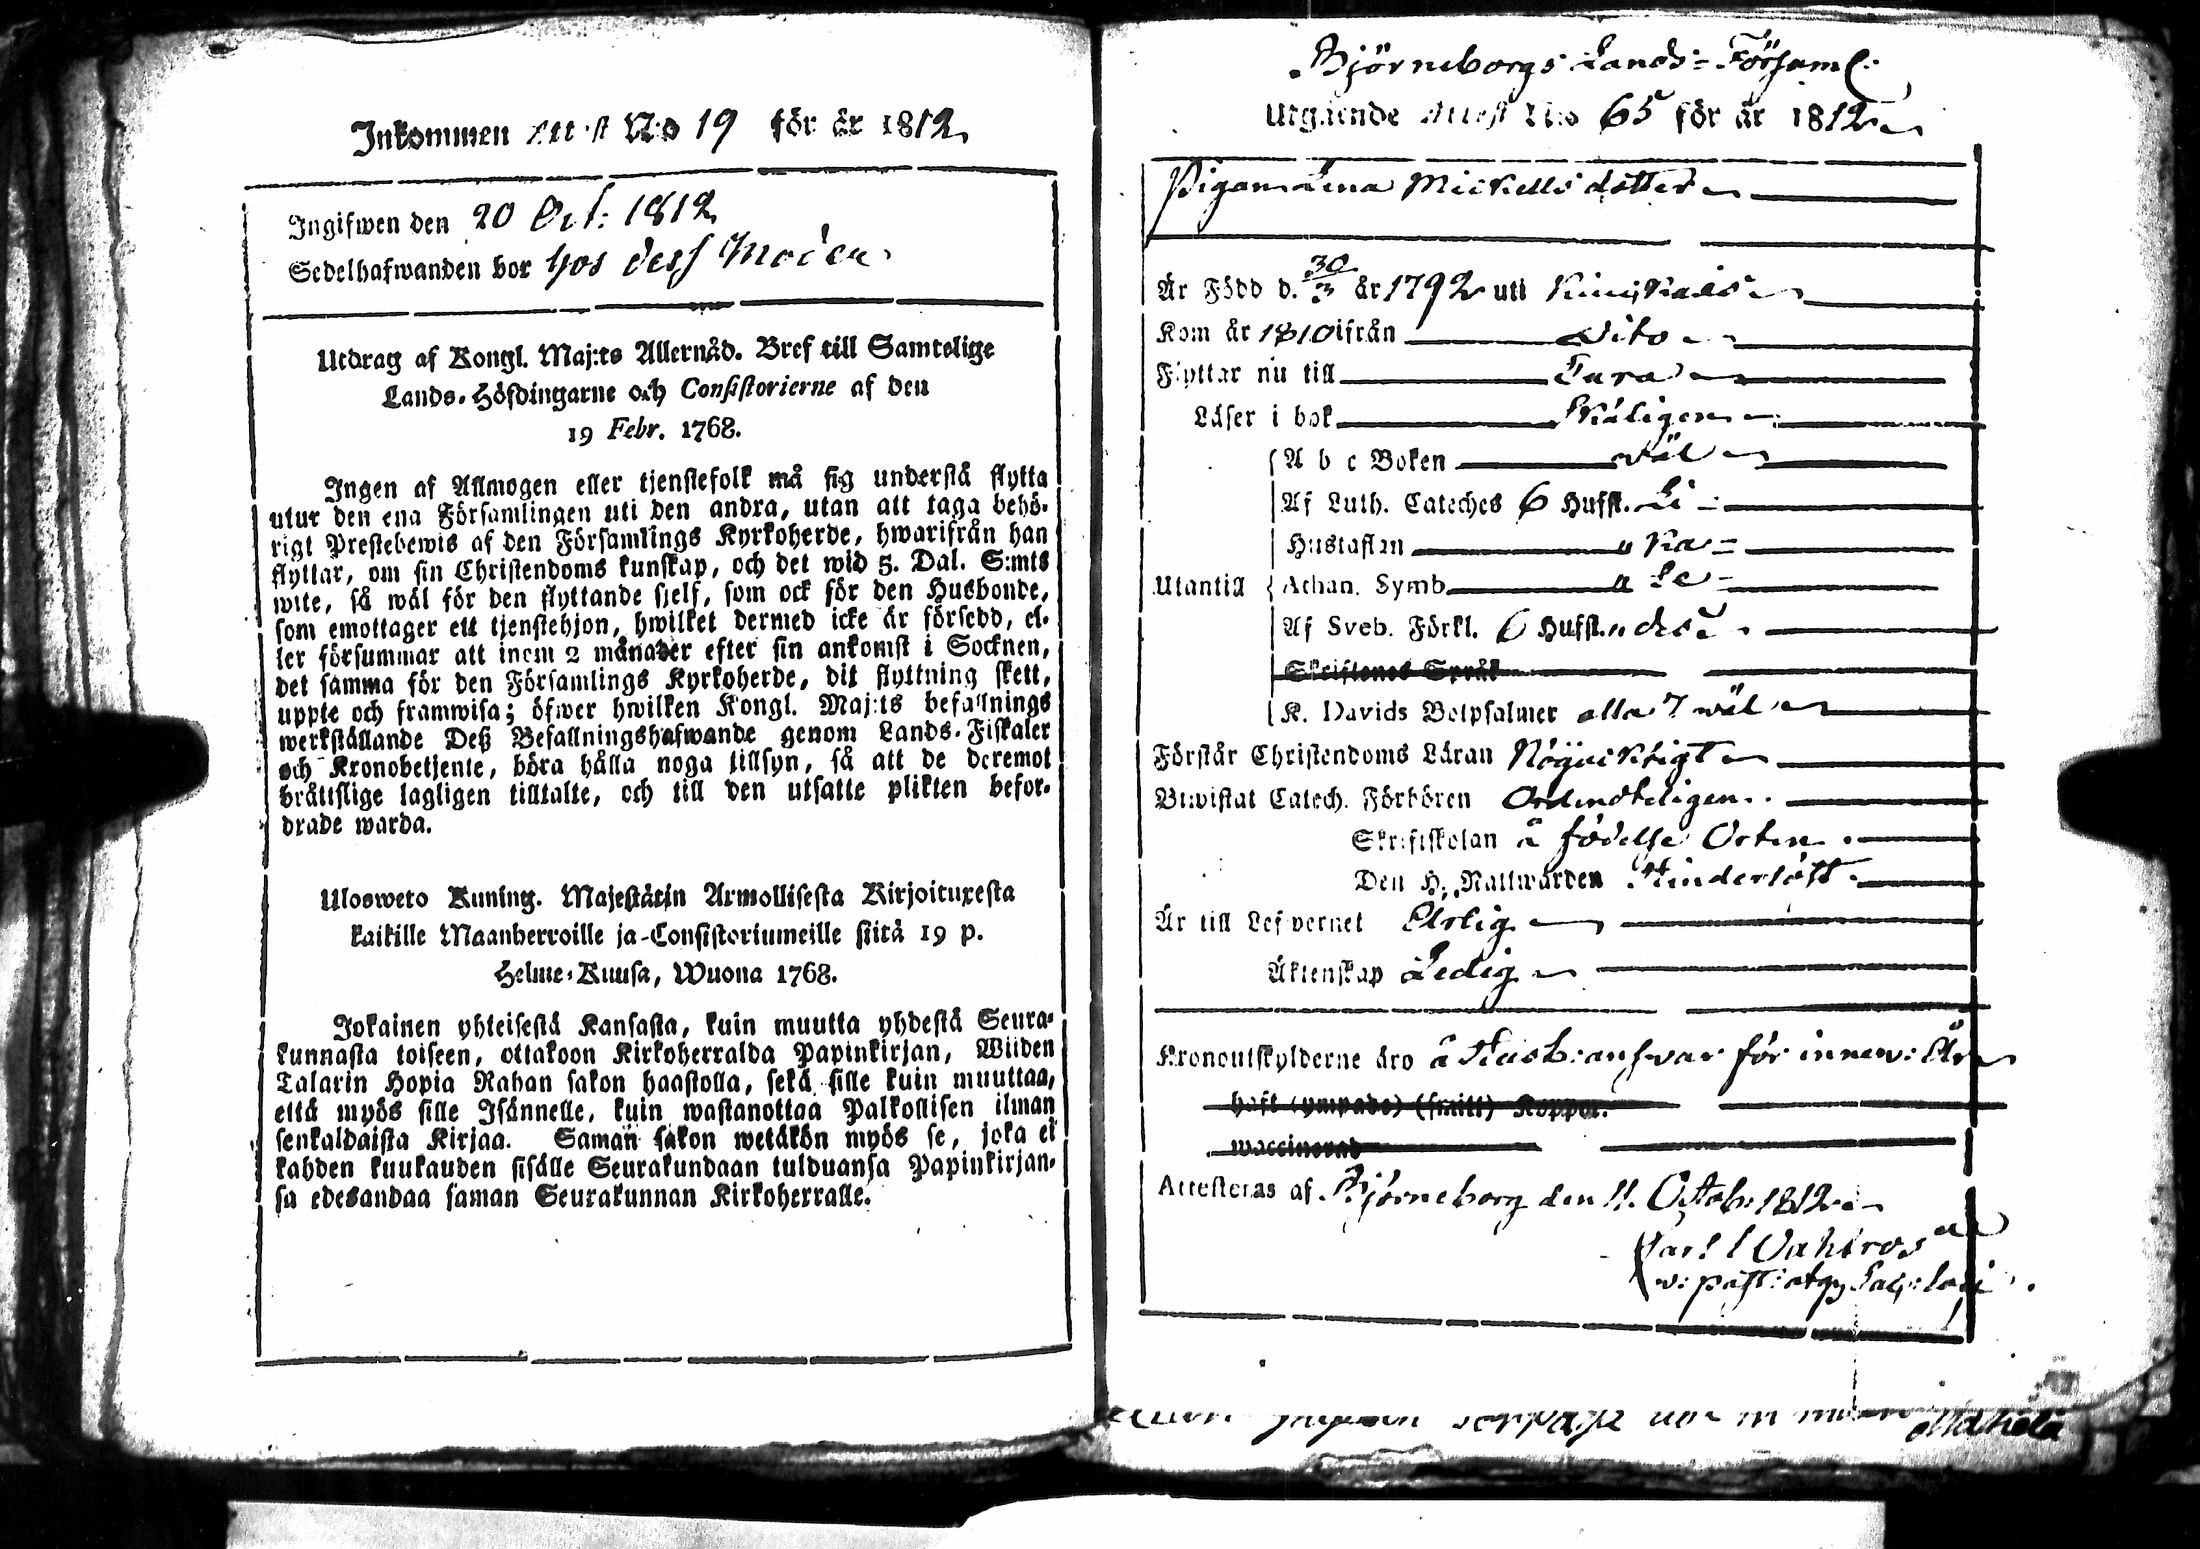 Inkommen Attest N:o 19 för år 1812
Ingifwen den 20 Oct: 1812
Sedelhafwanden bor hos dess Moder
Utdrag af Kongl. Maj:ts Allernåd. Bref till Samtelige
Lands-Höfdingarne och Consistorierne af den
19 Febr. 1768.
Ingen af Allmogen eller tjenstefolk må sig understå flytta
utur den ena Församlingen uti den andra, utan att taga behö-
rigt Prestebewis af den Församlings Kyrkoherde, hwarifrån han
flyttar, om sin Christendoms kunskap, och det wid 5. Dal. S:mts
wite, så wäl för den flyttande sjelf, som ock för den Husbonde,
som emottager ett tjenstehjon, hwilket dermed icke är försedd, el-
ler försummar att inom 2 månader efter sin ankomst i Socknen,
det samma för den Församlings Kyrkoherde, dit flyttning skett,
uppte och framwisa; öfwer hwilken Kongl. Maj:ts befallnings
werkställande Deß Befallningshafwande genom Lands-Fiskaler
och Kronobetjente, böra hålla noga tillsyn, så att de deremot
bråttslige lagligen tilltalte, och till den utsatte plikten befor-
drade warda.
Ulosweto Kuning. Majestätin Armollisesta Kirjoituxesta
kaikille Maanherroille ja Consistoriumeille siitä 19 p.
Helme-Kuusa, Wuona 1768.
Jokainen yhteisestä Kansasta, kuin muutta yhdestä Seura-
kunnasta toiseen, ottakoon Kirkoherralda Papinkirjan, Wiiden
Talarin Hopia Rahan sakon haastolla, sekä sille kuin muuttaa,
että myös sille Isännelle, kuin wastanottaa Palkollisen ilman
senkaldaista Kirjaa. Saman sakon wetäkön myös se, joka ei
kahden kuukauden sisälle Seurakundaan tulduansa Papinkirjan-
sa edesandaa saman Seurakunnan Kirkoherralle.
Björneborgs Lands-Församl:
Utgående Attest N:o 65 för år 1812
Pigan Lena Mickelsdotter
Är Född d. 30/3 år 1792 uti
Kom år 1810 ifrån dito
Flyttar nu till
Läser i bok skäligen
A b c Boken väl
Af Luth. Cateches 6 Hufst.
Hustaflan
Utantill Athan. Symb.
Af Sveb. Förkl. 6 Hufst.
Skriftenes Språk
K. Davids Botpsalmer alla 7 wäl
Förstår Christendoms Läran Nöjacktigt
Biwistat Catech. Förhören Ordenteligen
Skriftskolan å födelse Orten
Den H. Nattwarden
Är till Lefvernet Ärlig
Äktenskap Ledig
Kronoutskylderne äro å Husb: answar för innew: År
haft (ympade) (smitt) Koppor.
waccinerad
Attesteras af Björneborg den 11. Octob: 1812
Carl Wahlroos